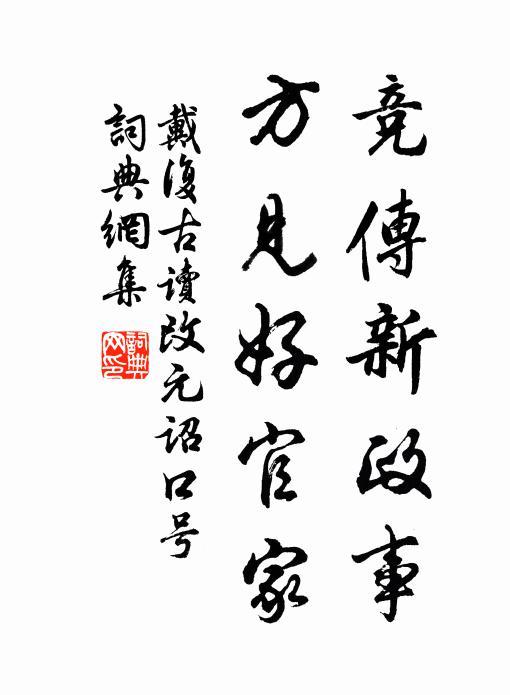 竞傳新政事
方見好官家
戴復古读改元诏口号
詞典網集
詞典網印